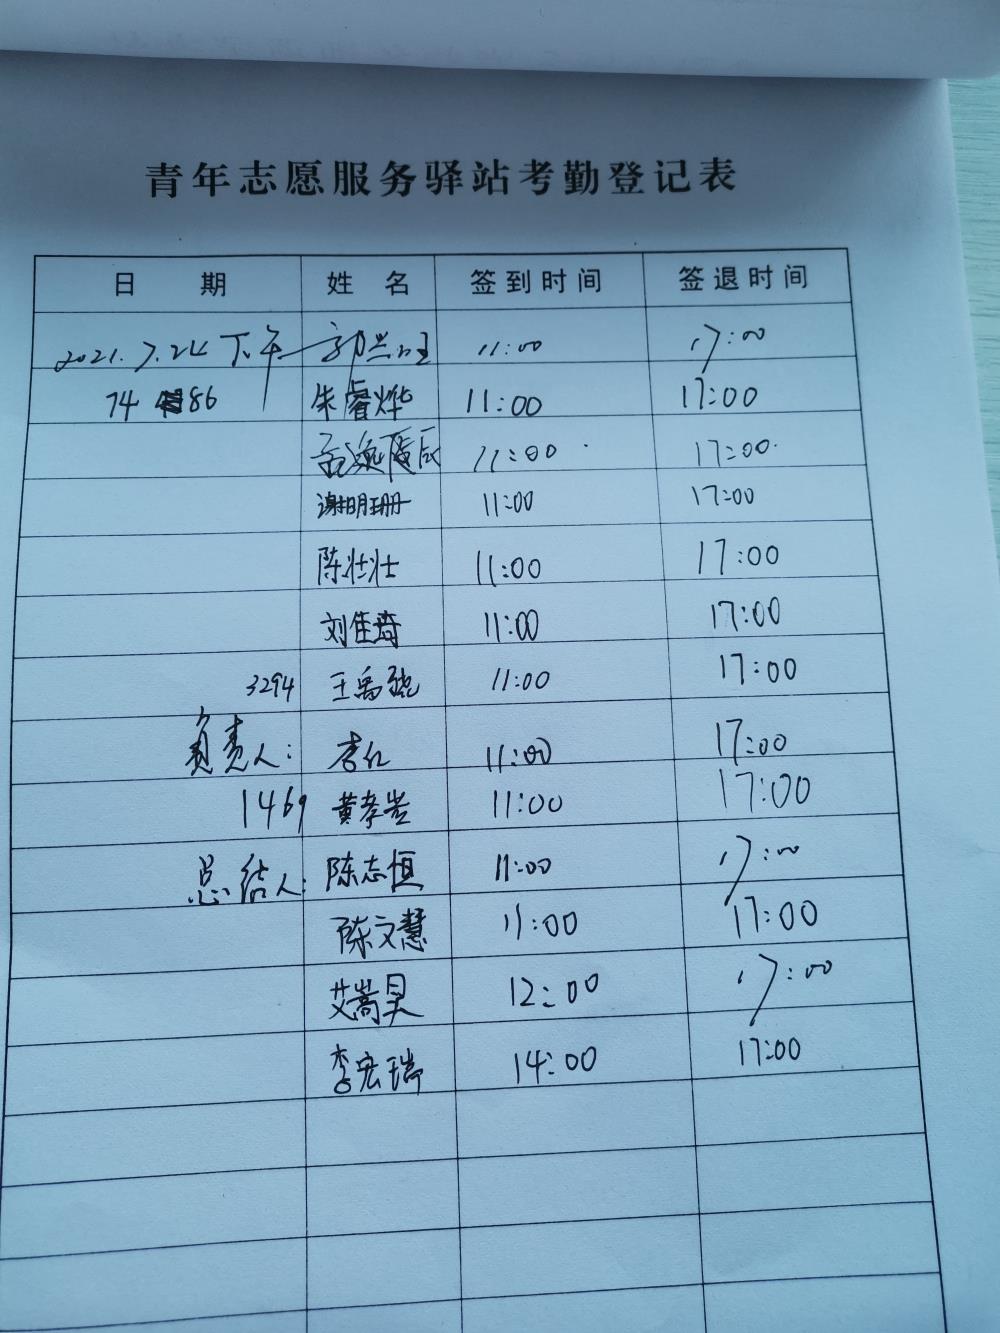 青年志愿服务驿站考勤登记表
日期 姓名 签到时间 签退时间
2021.7.24 下午 郭兰 11:00 17:00
74 86 朱睿烨 11:00 17:00
孟逸 辰 11:00 17:00
谢明珊 11:00 17:00
陈壮壮 11:00 17:00
刘佳琦 11:00 17:00
3294 王禹 11:00 17:00
负责人: 李红 11:00 17:00
1469 黄孝 11:00 17:00
总结人: 陈志恒 11:00 17:00
陈文慧 11:00 17:00
艾嵩昊 12:00 17:00
李宏瑞 14:00 17:00